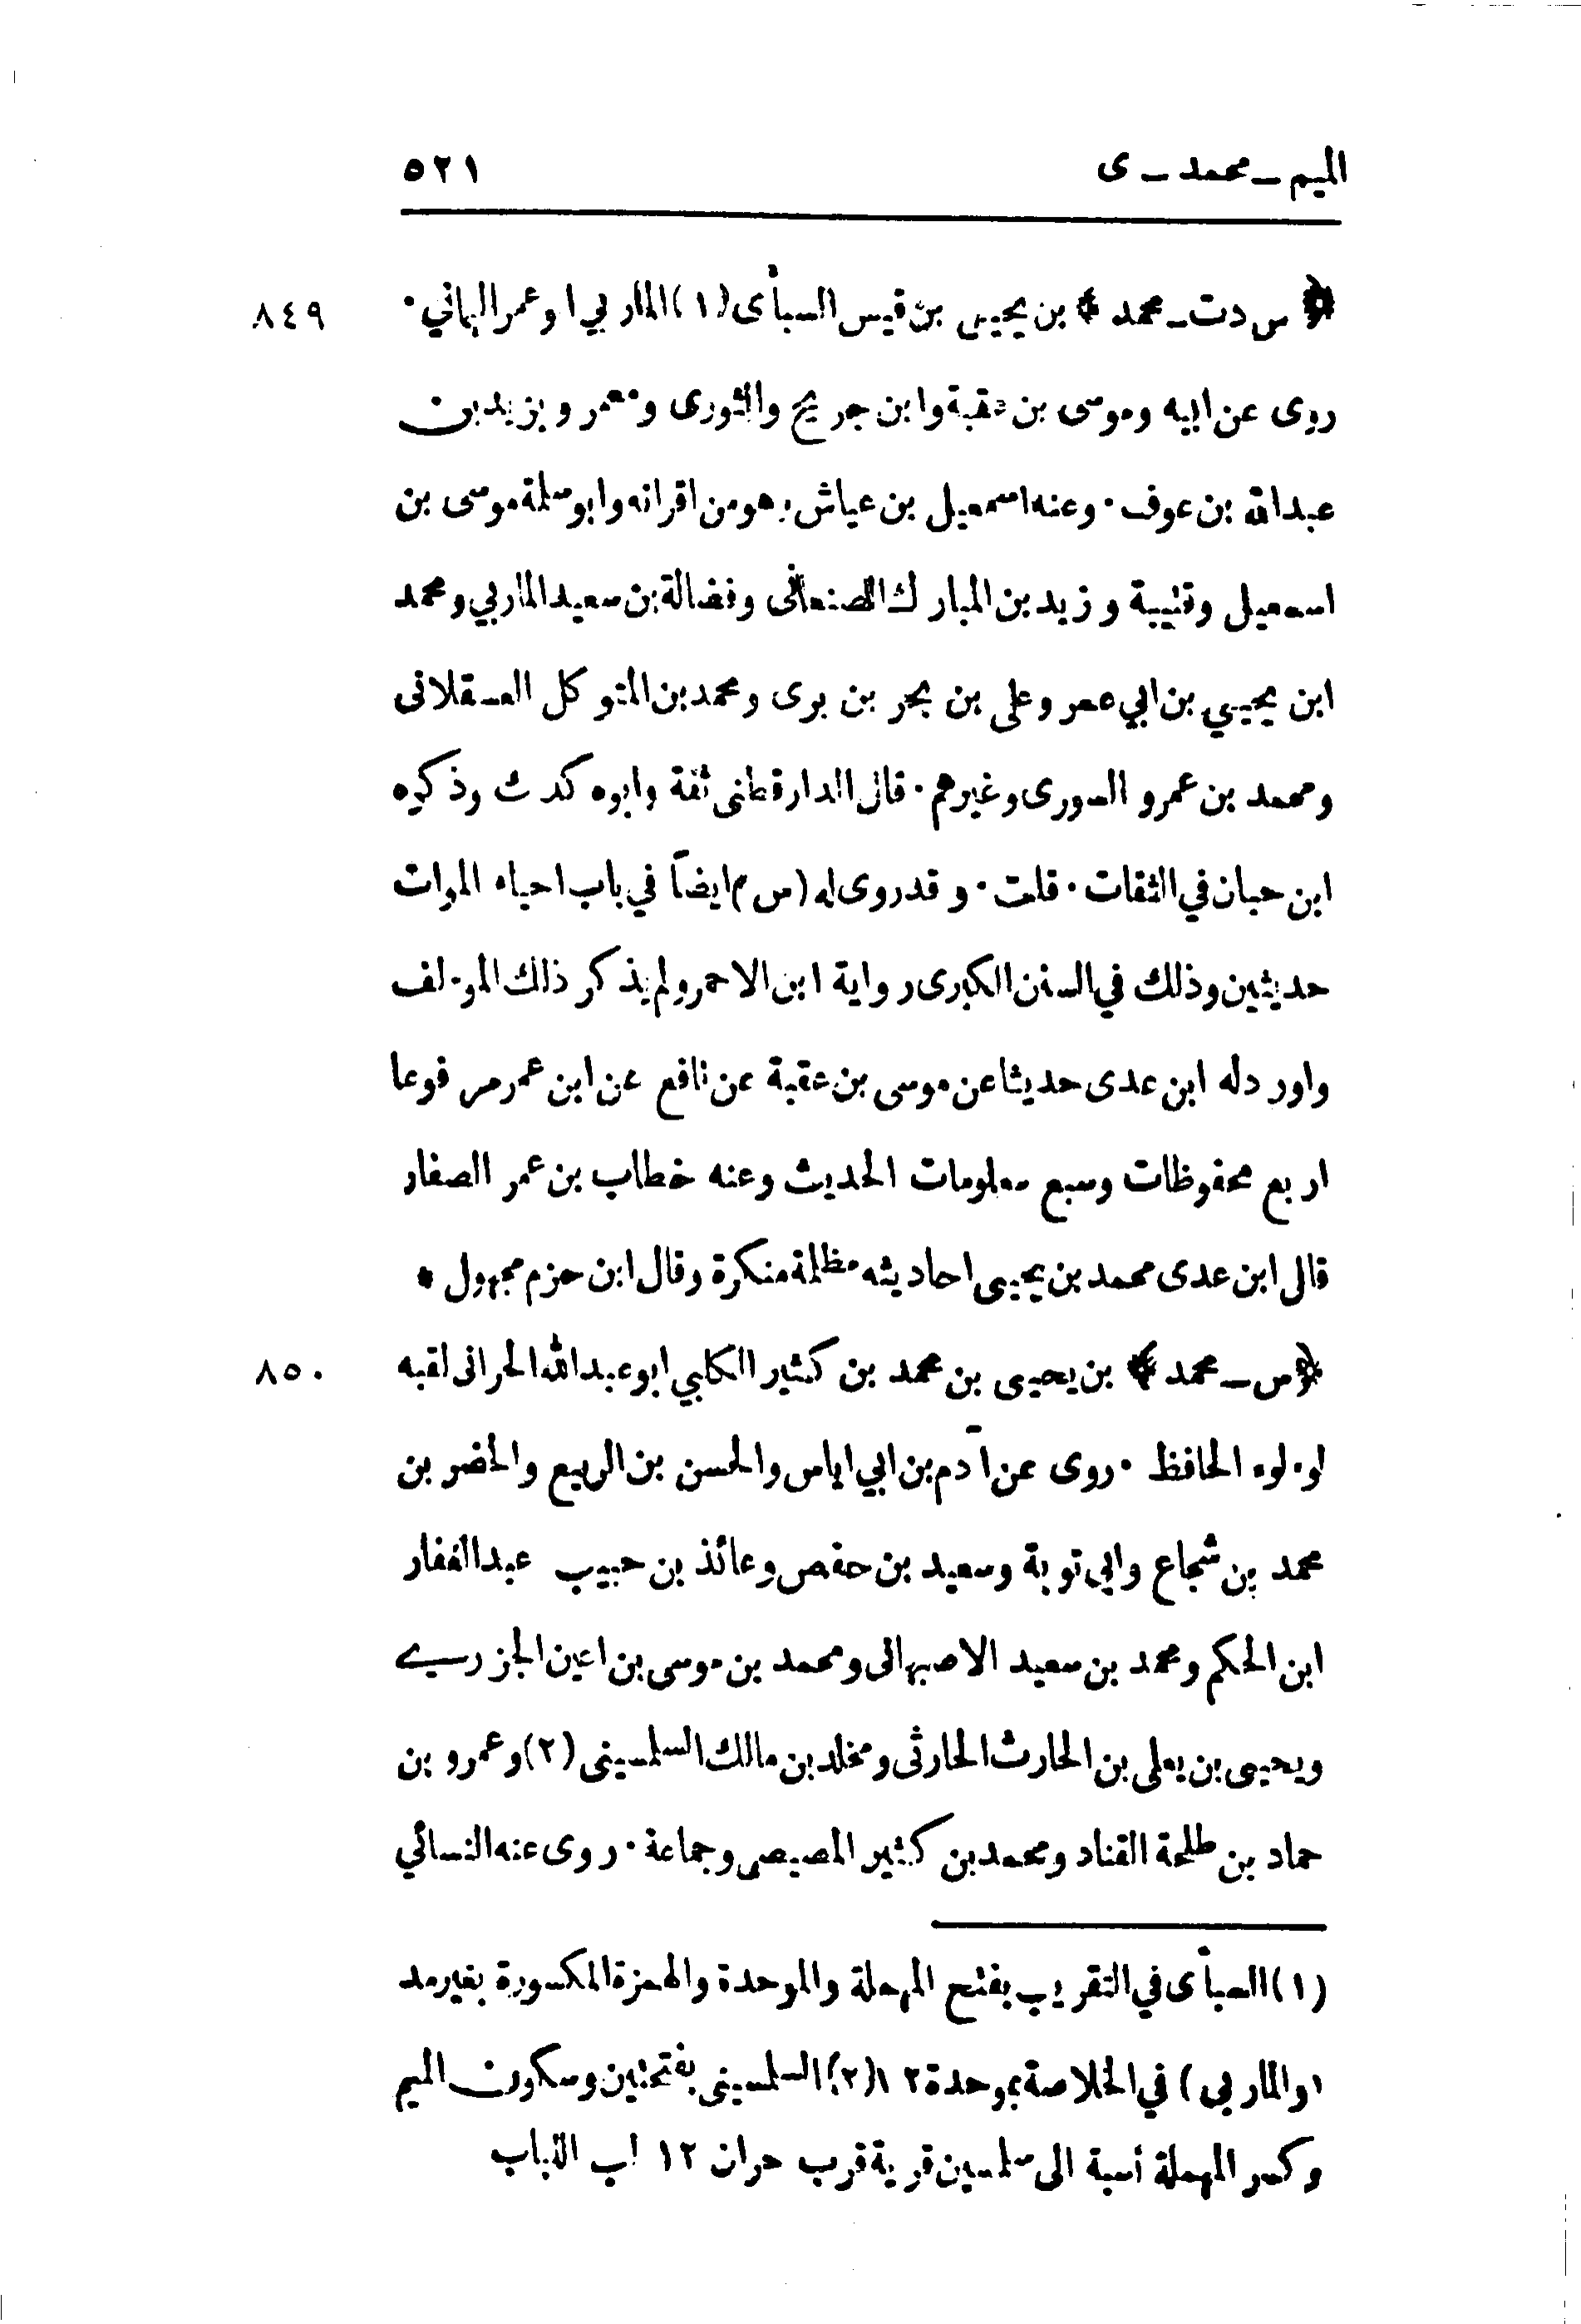 الميم ـ محمد ـ ى ٥٢١
﴿ س د ت ـ محمد ﴾ بن يحيى بن قيس السبأى (١) الماربي ا وعمر اليماني · ٨٤٩
روى عن ابيه وموسى بن عقبة وابن جريج والثورى ومعمر ويزيد بن
عبدالله بن عوف · وعنه اسمعيل بن عياش وهو من اقرانه وابوسلمة موسى بن
اسمعيل وقتيبة وزيد بن المبارك الصنعانى وفضالة بن سعيد الماربي ومحمد
ابن يحيى بن ابي عمر وعلى بن بحر بن برى ومحمد بن المتوكل العسقلانى
ومحمد بن عمرو السورى وغيرهم · قال الدارقطنى ثقة وابوه كد ث وذكره
ابن حبان في الثقات · قلت · وقد روى له (س) ايضاً في باب احياء الموات
حديثين وذلك في السنن الكبرى رواية ابن الاحمر ولم يذكر ذلك المؤلف
واورد له ابن عدى حديثا عن موسى بن عقبة عن نافع عن ابن عمر مرفوعا
اربع محفوظات وسبع معلومات الحديث وعنه خطاب بن عمر الصفار
قال ابن عدى محمد بن يحيى احاديثه مظلمة منكرة وقال ابن حزم مجهول *
﴿ س ـ محمد ﴾ بن يحيى بن محمد بن كثير الكلبي ابوعبدالله الحرانى لقبه ٨٥٠
لوءلوء الحافظ · روى عن آدم بن ابي اياس والحسن بن الربيع والخضر بن
محمد بن شجاع وابي توبة وسعيد بن حفص وعائذ بن حبيب عبدالغفار
ابن الحكم ومحمد بن سعيد الاصبهانى ومحمد بن موسى بن اعين الجزرے
ويحيى بن يعلى بن الحارث الحارثى ومخلد بن مالك السلمسينى (٢) وعمرو بن
حماد بن طلحة القناد ومحمد بن كثير المصيصى وجماعة · روى عنه النسائي
(١) السبأى في التقريب بفتح المهملة والموحدة والهمزة المكسورة بغير مد
(والماربى) في الخلاصة بموحدة ١٢ (٢) السلمسينى بفتحتين وسكون الميم
وكسر المهملة نسبة الى سلمسين قرية قرب حران ١٢ لب اللباب